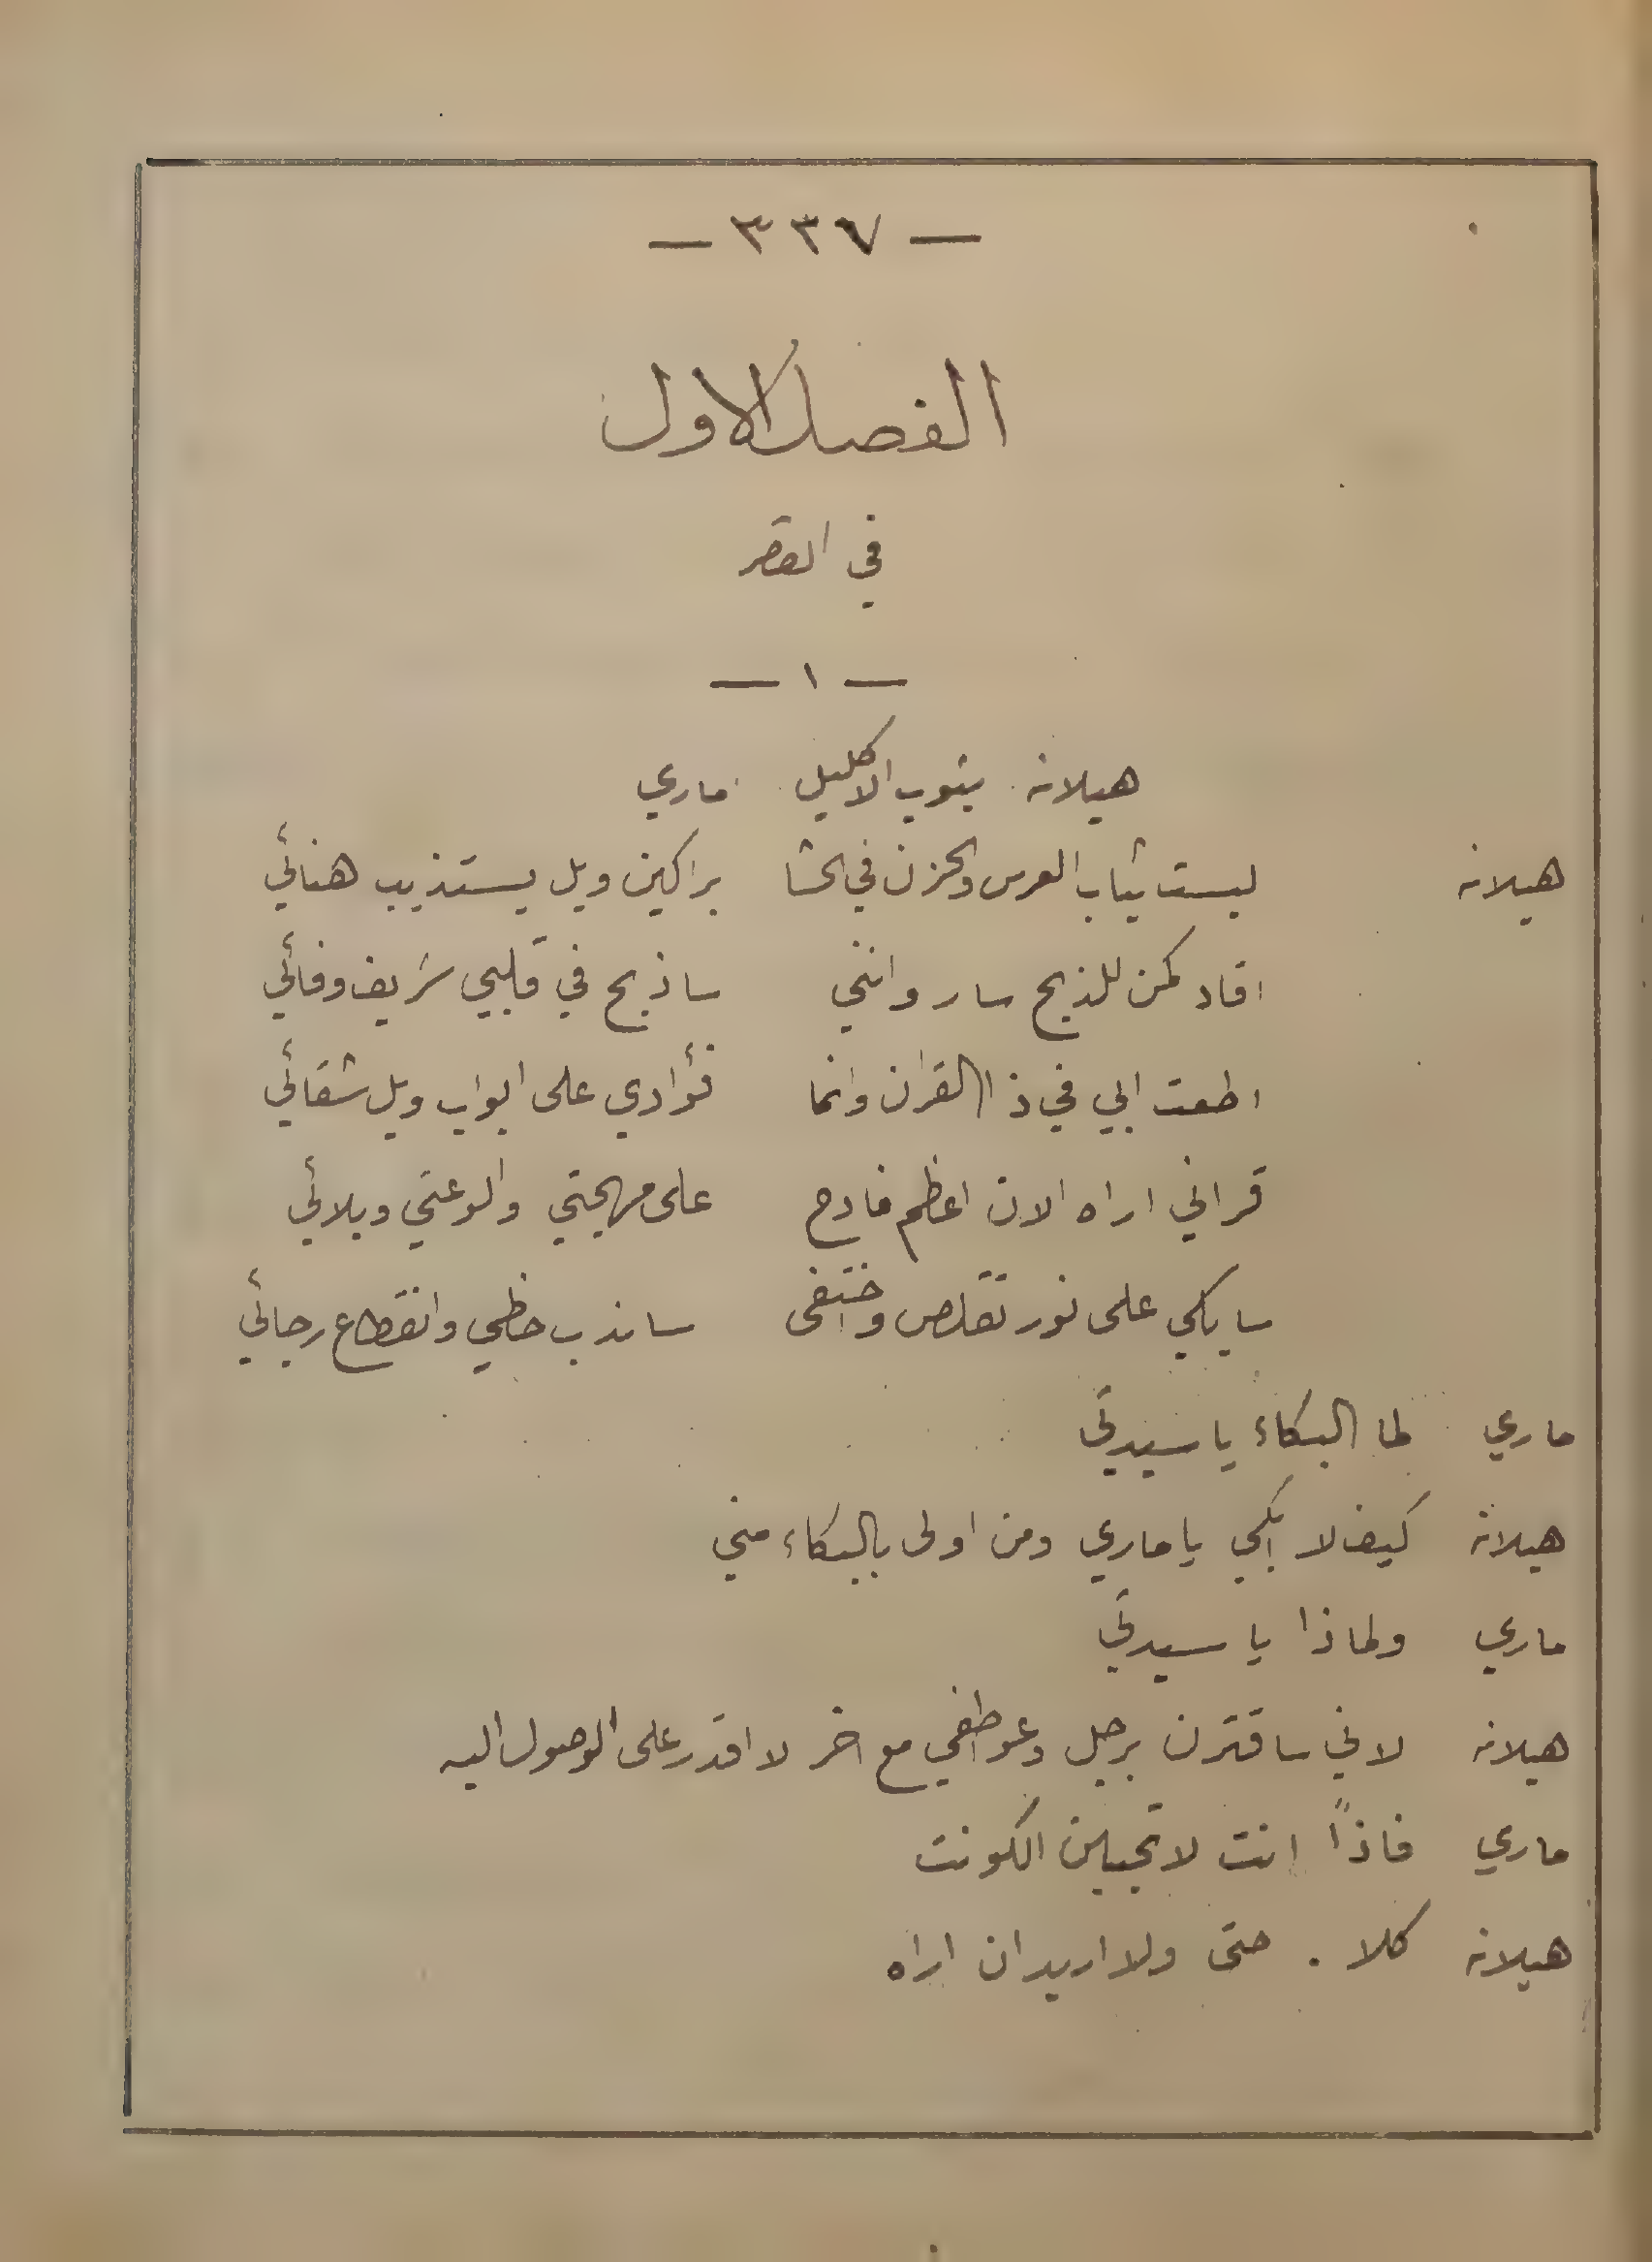 — ٣٣٧ —
الفصل الاول
في القصر
— ١ —
هيلانه بثوب الاكليل ماري
هيلانه لبست ثياب العرس والحزن في الحشا براكين ويل يستذيب هنائي
اقاد كمن للذبح سار وانني ساذبح في قلبي شريف وفائي
اطعت ابي في ذا القران وانما فؤادي على ابواب ويل شقائي
قراني اراه الان اعظم فادح على مهجتي والوعتي وبلائي
سابكي على نور تقلص واختفى ساندب حظي وانقطاع رجائي
ماري لما البكاء يا سيدتي
هيلانة كيف لا ابكي يا ماري ومن اولى بالبكاء مني
ماري ولماذا يا سيدتي
هيلانه لاني ساقترن برجل وعواطفي مع اخر لا اقدر على الوصول اليه
ماري فاذاً انت لا تحبين الكونت
هيلانه كلا . حتى ولا اريد ان اراه